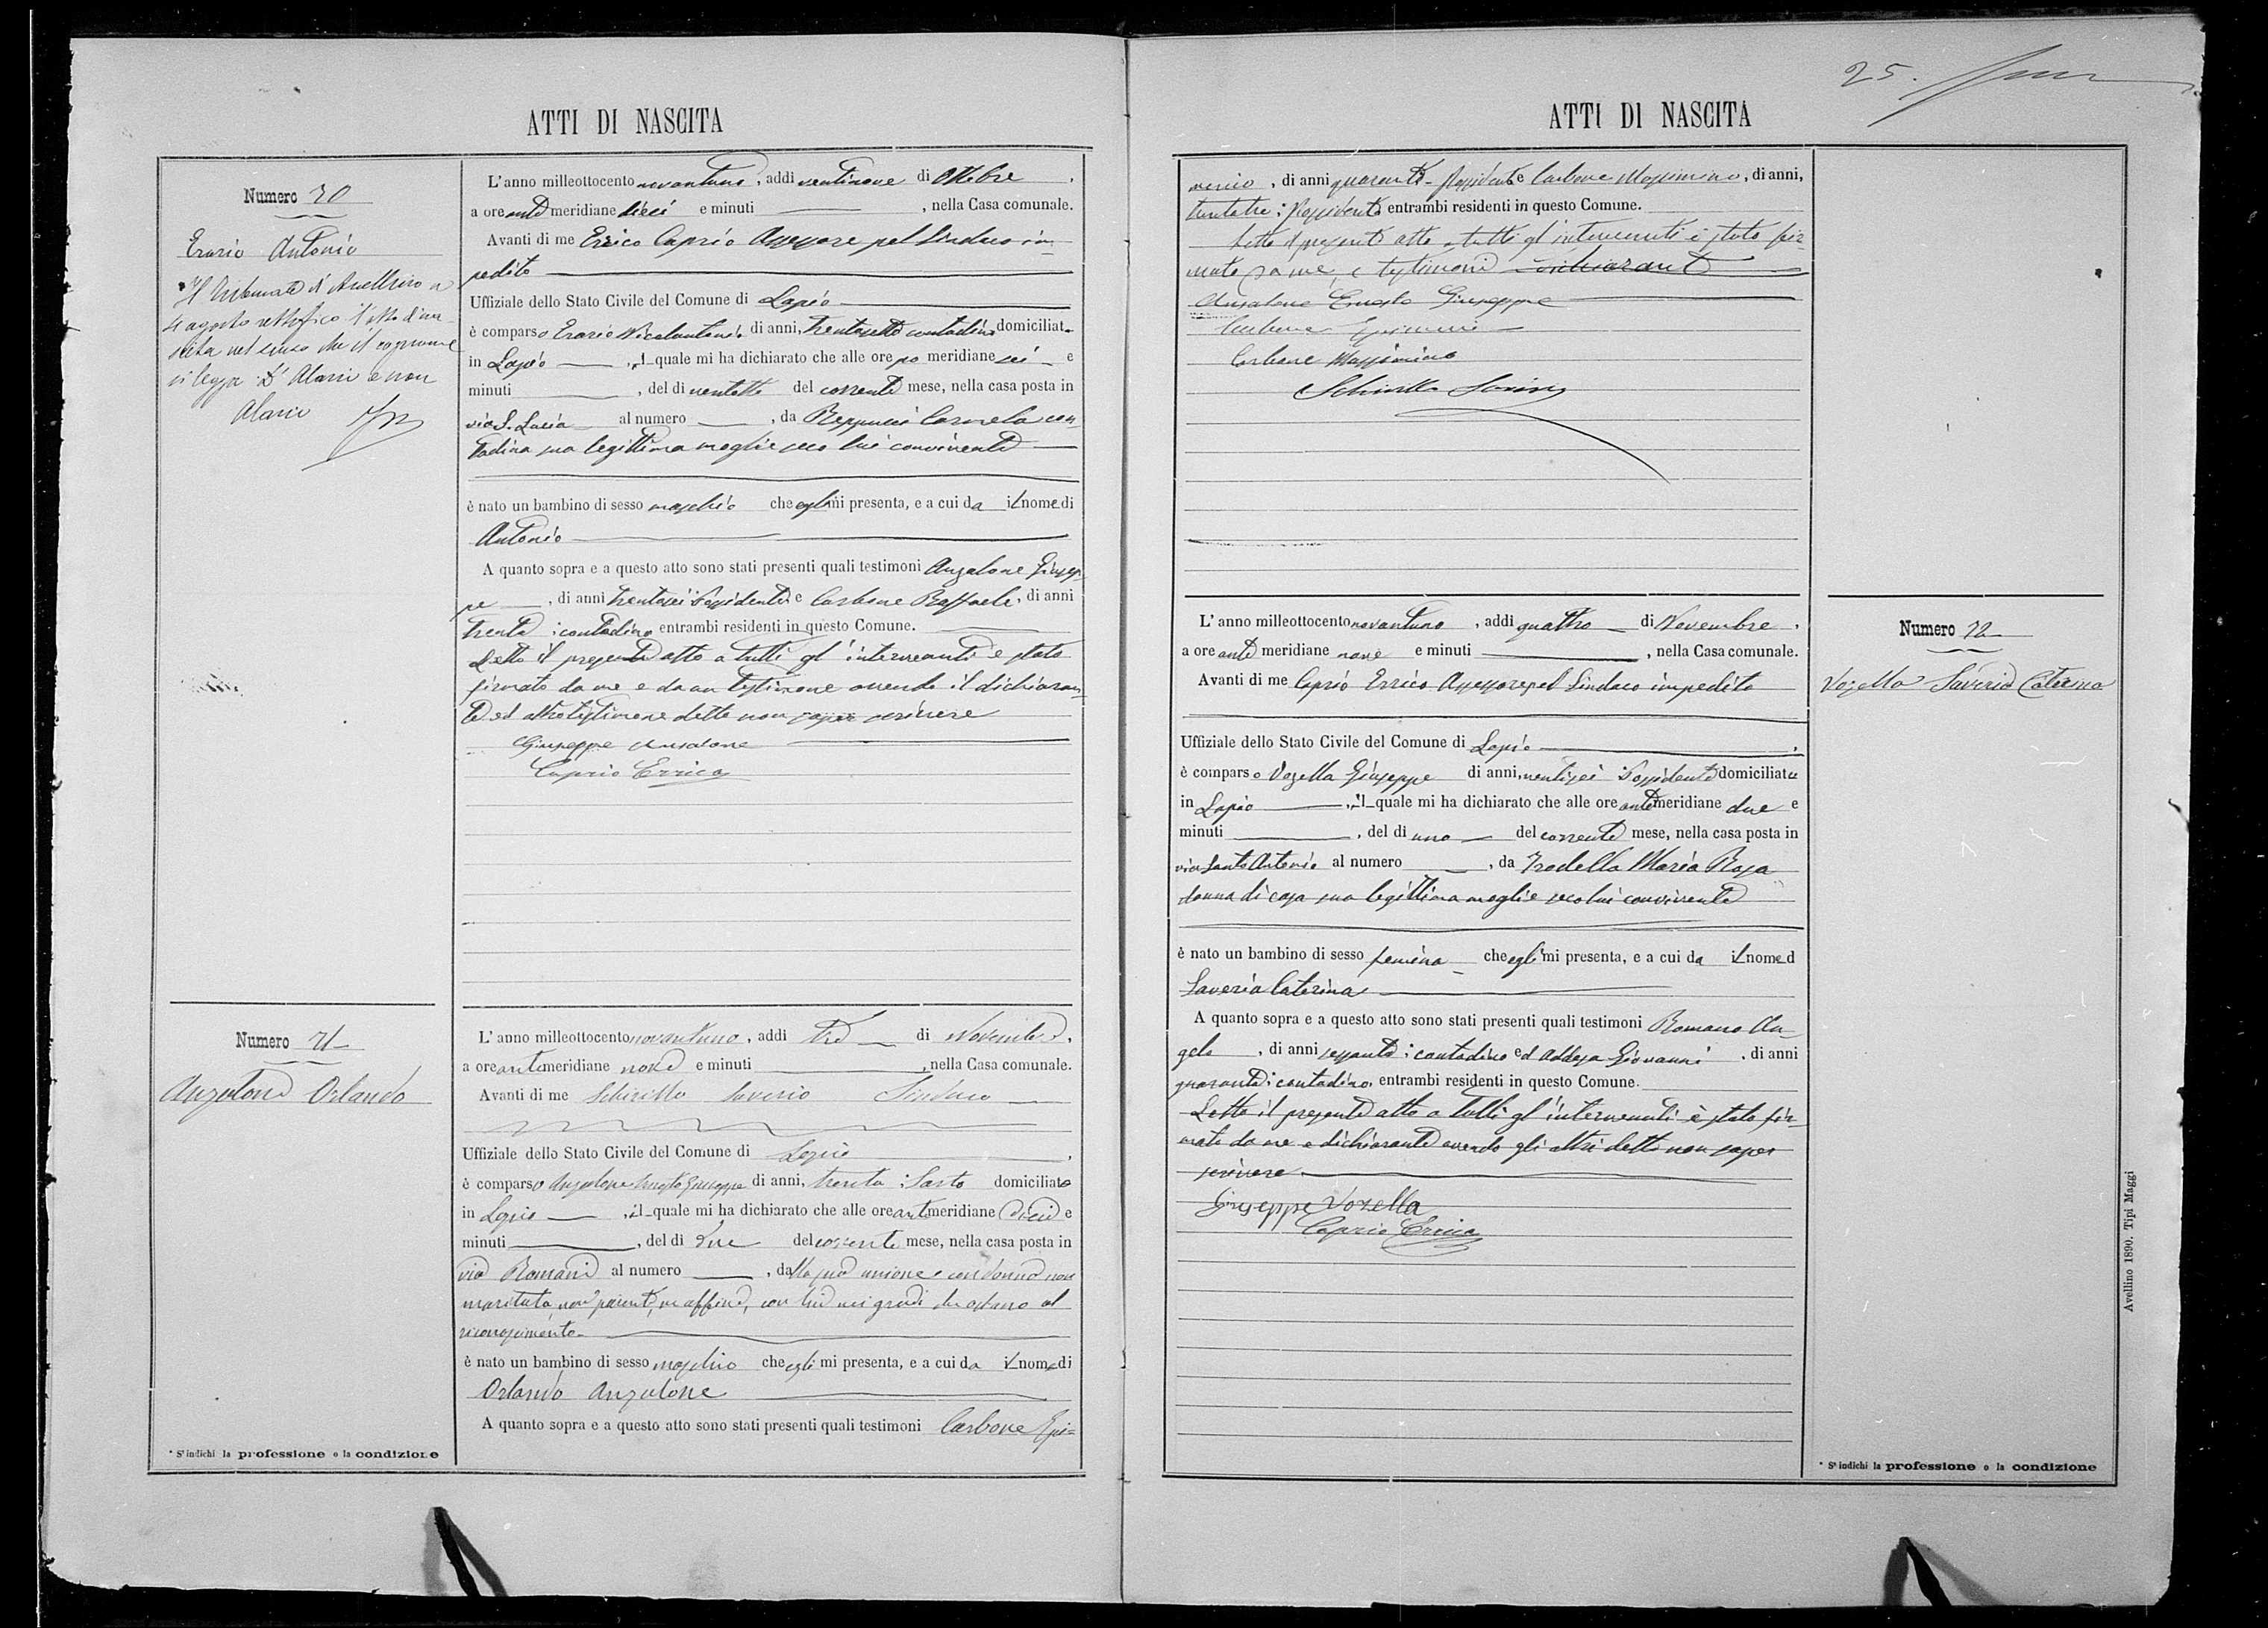 ATTI DI NASCITA
Numero 70
Erario Antonio
Il Tribunale di Avellino
4 agosto rettificò l'atto di na-
scita nel senso che il cognome
si legga D'Alario e non
Alario
L'anno milleottocento novantuno, addi ventinove di Ottobre,
a ore ante meridiane dieci e minuti , nella Casa comunale.
Avanti di me Errico Caprio Assessore pel Sindaco im-
pedito
Uffiziale dello Stato Civile del Comune di Lapio
è comparso Erario Nicolantonio, di anni, trentasette contadino domiciliato
in Lapio , il quale mi ha dichiarato che alle ore po meridiane sei e
minuti , del di ventotto del corrente mese, nella casa posta in
via S. Lucia al numero , da Reppucci Carmela con-
tadina sua legittima moglie seco lui convivente
è nato un bambino di sesso maschio che egli mi presenta, e a cui da il nome di
Antonio
A quanto sopra e a questo atto sono stati presenti quali testimoni Anzalone Giusep-
pe , di anni trentasei Possidente e Carbone Raffaele, di anni
trenta contadino entrambi residenti in questo Comune.
Letto il presente atto a tutti gl'intervenuti è stato
firmato da me e da un testimone avendo il dichiaran-
te ed altro testimone detto non saper scrivere
Giuseppe Ansalone
Caprio Errico
Numero 71
Anzalone Orlando
L'anno milleottocento novantuno, addi tre di Novembre,
a ore antemeridiane nove e minuti , nella Casa comunale.
Avanti di me Schirillo Saverio Sindaco
Uffiziale dello Stato Civile del Comune di Lapio
è comparso Anzalone Ernesto Giuseppe di anni, trenta : Sarto domiciliato
in Lapio , il quale mi ha dichiarato che alle ore antemeridiane dieci e
minuti , del di due del corrente mese, nella casa posta in
via Romani al numero , dalla sua unione con donna non
maritata, non parente, ne affine, con lui nei gradi che ostano al
riconoscimento
è nato un bambino di sesso maschio che egli mi presenta, e a cui da il nome di
Orlando Anzalone
A quanto sopra e a questo atto sono stati presenti quali testimoni Carbone Epi=
* S'indichi la professione o la condizione
25.
ATTI DI NASCITA
menio, di anni quaranta Possidente e Carbone Massimino, di anni,
trentatre : Possidente entrambi residenti in questo Comune.
Letto il presente atto a tutti gl'intervenuti è stato fir-
mato da me, e testimoni e dichiarante
Ansalone Ernesto Giuseppe
Carbone Epimenio
Carbone Massimino
Schirillo Saverio
Numero 72
Vozella Saveria Caterina
L'anno milleottocento novantuno, addi quattro di Novembre,
a ore ante meridiane nove e minuti , nella Casa comunale.
Avanti di me Caprio Errico Assessore pel Sindaco impedito
Uffiziale dello Stato Civile del Comune di Lapio
è comparso Vozella Giuseppe di anni, ventisei : Possidente domiciliato
in Lapio , il quale mi ha dichiarato che alle ore antemeridiane due e
minuti , del di uno del corrente mese, nella casa posta in
via Santo Antonio al numero , da Trodella Maria Rosa
donna di casa sua legittima moglie seco lui convivente
è nato un bambino di sesso femina che egli mi presenta, e a cui da il nome d
Saveria Caterina
A quanto sopra e a questo atto sono stati presenti quali testimoni Romano An-
gelo , di anni sessanta : contadino ed Addesa Giovanni , di anni
quaranta : contadino, entrambi residenti in questo Comune.
Letto il presente atto a tutti gl'intervenuti è stato fir-
mato da me e dichiarante avendo gli altri detto non saper
scrivere
Giuseppe Vozella
Caprio Errico
* S'indichi la professione o la condizione
Avellino 1890. Tipi Maggi